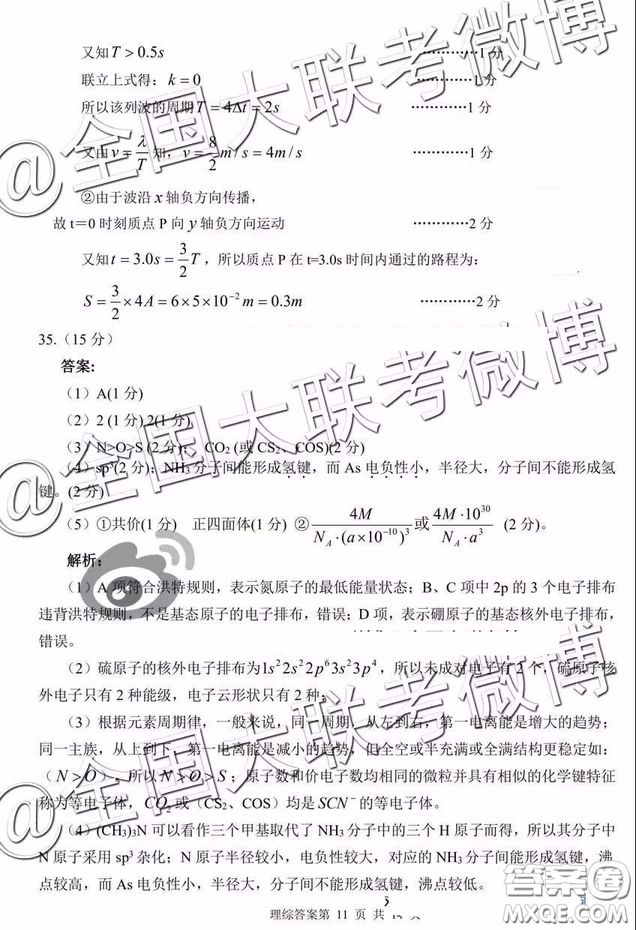 又知T > 0.5s …………1分
联立上式得：k = 0 …………1分
所以该列波的周期T = 4Δt = 2s …………1分
又由v = λ/T 知，v = 8/2 m/s = 4m/s …………1分
②由于波沿 x 轴负方向传播，
故 t＝0 时刻质点 P 向 y 轴负方向运动 …………2分
又知 t = 3.0s = 3/2 T，所以质点 P 在 t=3.0s 时间内通过的路程为：
S = 3/2 × 4A = 6×5×10⁻²m = 0.3m …………2分
35.（15 分）
答案:
（1）A(1 分)
（2）2 (1 分) 2(1 分)
（3）N>O>S (2 分)； CO₂ (或 CS₂、COS)(2 分)
（4）sp³(2 分)；NH₃分子间能形成氢键，而 As 电负性小，半径大，分子间不能形成氢
键。(2 分)
（5）①共价(1 分) 正四面体(1 分) ② 4M/(N_A·(a×10⁻¹⁰)³) 或 4M·10³⁰/(N_A·a³) (2 分)。
解析:
（1）A 项符合洪特规则，表示氮原子的最低能量状态；B、C 项中 2p 的 3 个电子排布
违背洪特规则，不是基态原子的电子排布，错误；D 项，表示硼原子的基态核外电子排布，
错误。
（2）硫原子的核外电子排布为1s²2s²2p⁶3s²3p⁴，所以未成对电子有 2 个，硫原子核
外电子只有 2 种能级，电子云形状只有 2 种；
（3）根据元素周期律，一般来说，同一周期，从左到右，第一电离能是增大的趋势；
同一主族，从上到下，第一电离能是减小的趋势，但全空或半充满或全满结构更稳定如：
（N > O），所以 N > O > S；原子数和价电子数均相同的微粒并具有相似的化学键特征
称为等电子体，CO₂ 或（CS₂、COS）均是SCN⁻的等电子体。
（4）(CH₃)₃N 可以看作三个甲基取代了 NH₃分子中的三个 H 原子而得，所以其分子中
N 原子采用 sp³ 杂化；N 原子半径较小，电负性较大，对应的 NH₃分子间能形成氢键，沸
点较高，而 As 电负性小，半径大，分子间不能形成氢键，沸点较低。
理综答案第 11 页 共
@全国大联考微博
@全国大联考微博
@全国大联考微博
答案圈
MXQE.COM